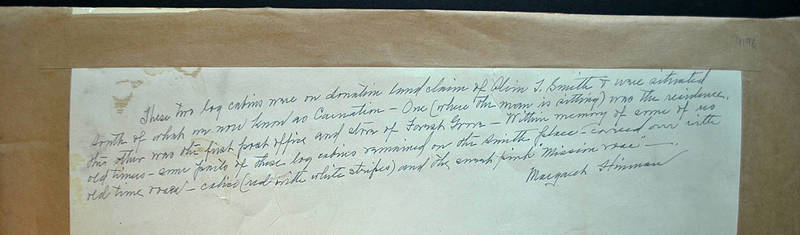 These two log cabins were on donation land claim of Alvin T. Smith & were situated
South of what we now know as Carnation - One (where the man is sitting) was the residence,
this other was the first post office and store of Forest Grove - Within memory of some of us
old timers - some parts of these log cabins remained on the Smith place - covered over with
old time roses - calico (red with white stripes) and the small pink "Mission rose" -
Margaret Hinman